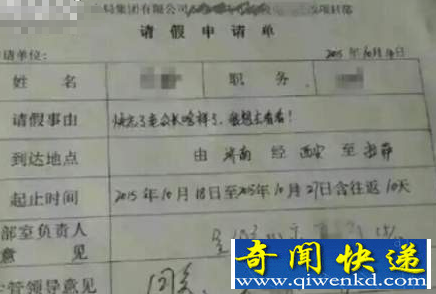 局集团有限公司
项目部
请假申请单
请单位:
2015年10月14日
姓名
职务
请假事由
快忘了老公长啥样了,很想去看看!
到达地点
由济南经西安至拉萨
起止时间
2015年10月18日至2015年10月27日含往返10天
部室负责人
意见
管领导意见
同意
奇闻快递
www.qiwenkd.com